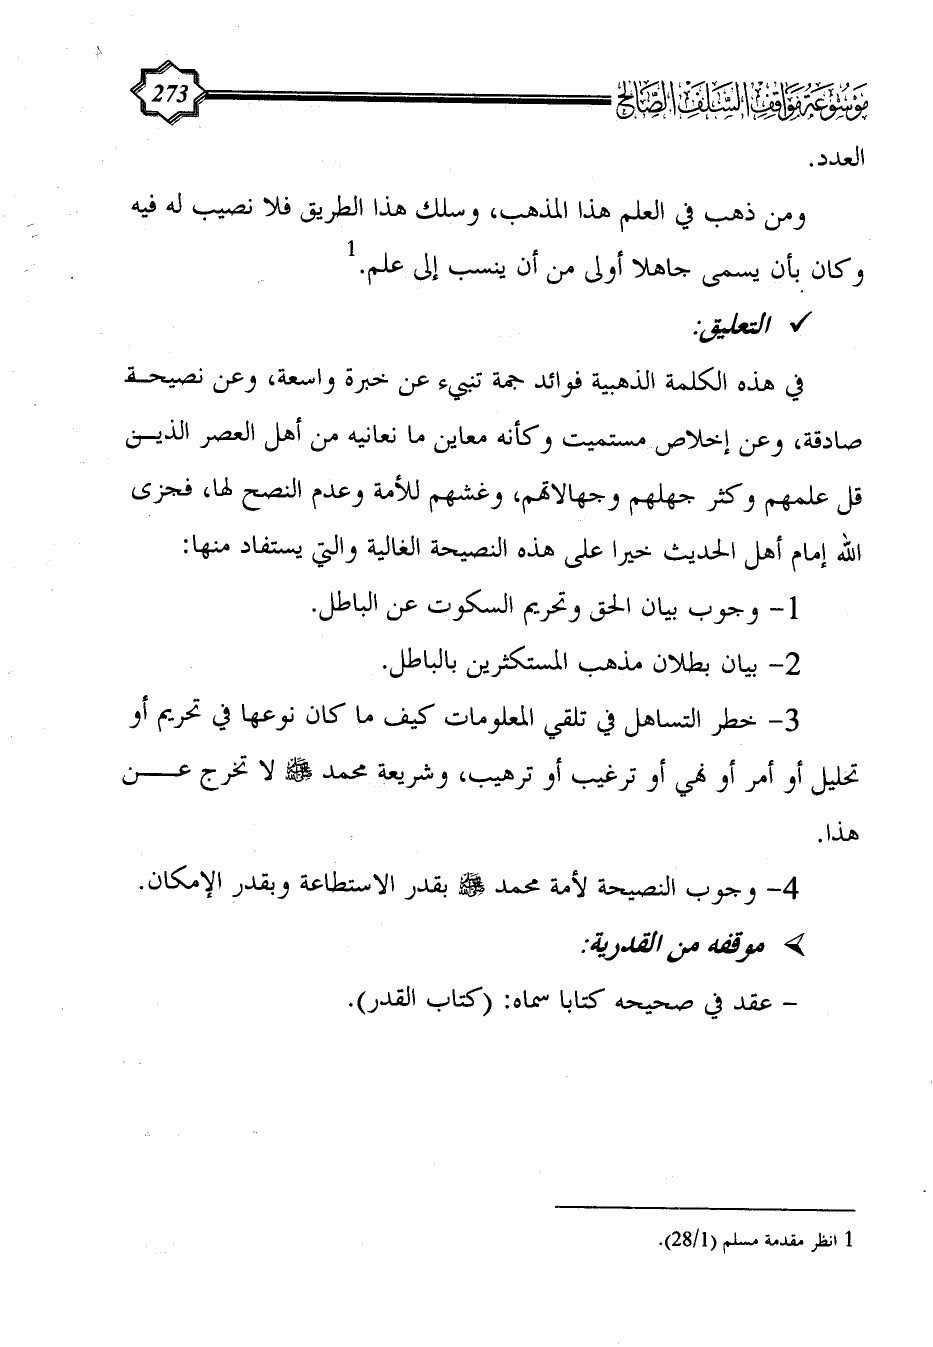 موسوعة مواقف السلف الصالح
273
العدد.
ومن ذهب في العلم هذا المذهب، وسلك هذا الطريق فلا نصيب له فيه
وكان بأن يسمى جاهلا أولى من أن ينسب إلى علم.1
✓ التعليق:
في هذه الكلمة الذهبية فوائد جمة تنبيء عن خبرة واسعة، وعن نصيحة
صادقة، وعن إخلاص مستميت وكأنه معاين ما نعانيه من أهل العصر الذين
قل علمهم وكثر جهلهم وجهالاتهم، وغشهم للأمة وعدم النصح لها، فجزى
الله إمام أهل الحديث خيرا على هذه النصيحة الغالية والتي يستفاد منها:
1- وجوب بيان الحق وتحريم السكوت عن الباطل.
2- بيان بطلان مذهب المستكثرين بالباطل.
3- خطر التساهل في تلقي المعلومات كيف ما كان نوعها في تحريم أو
تحليل أو أمر أو نهي أو ترغيب أو ترهيب، وشريعة محمد ﷺ لا تخرج عن
هذا.
4- وجوب النصيحة لأمة محمد ﷺ بقدر الاستطاعة وبقدر الإمكان.
➢ موقفه من القدرية:
- عقد في صحيحه كتابا سماه: (كتاب القدر).
1 انظر مقدمة مسلم (28/1).